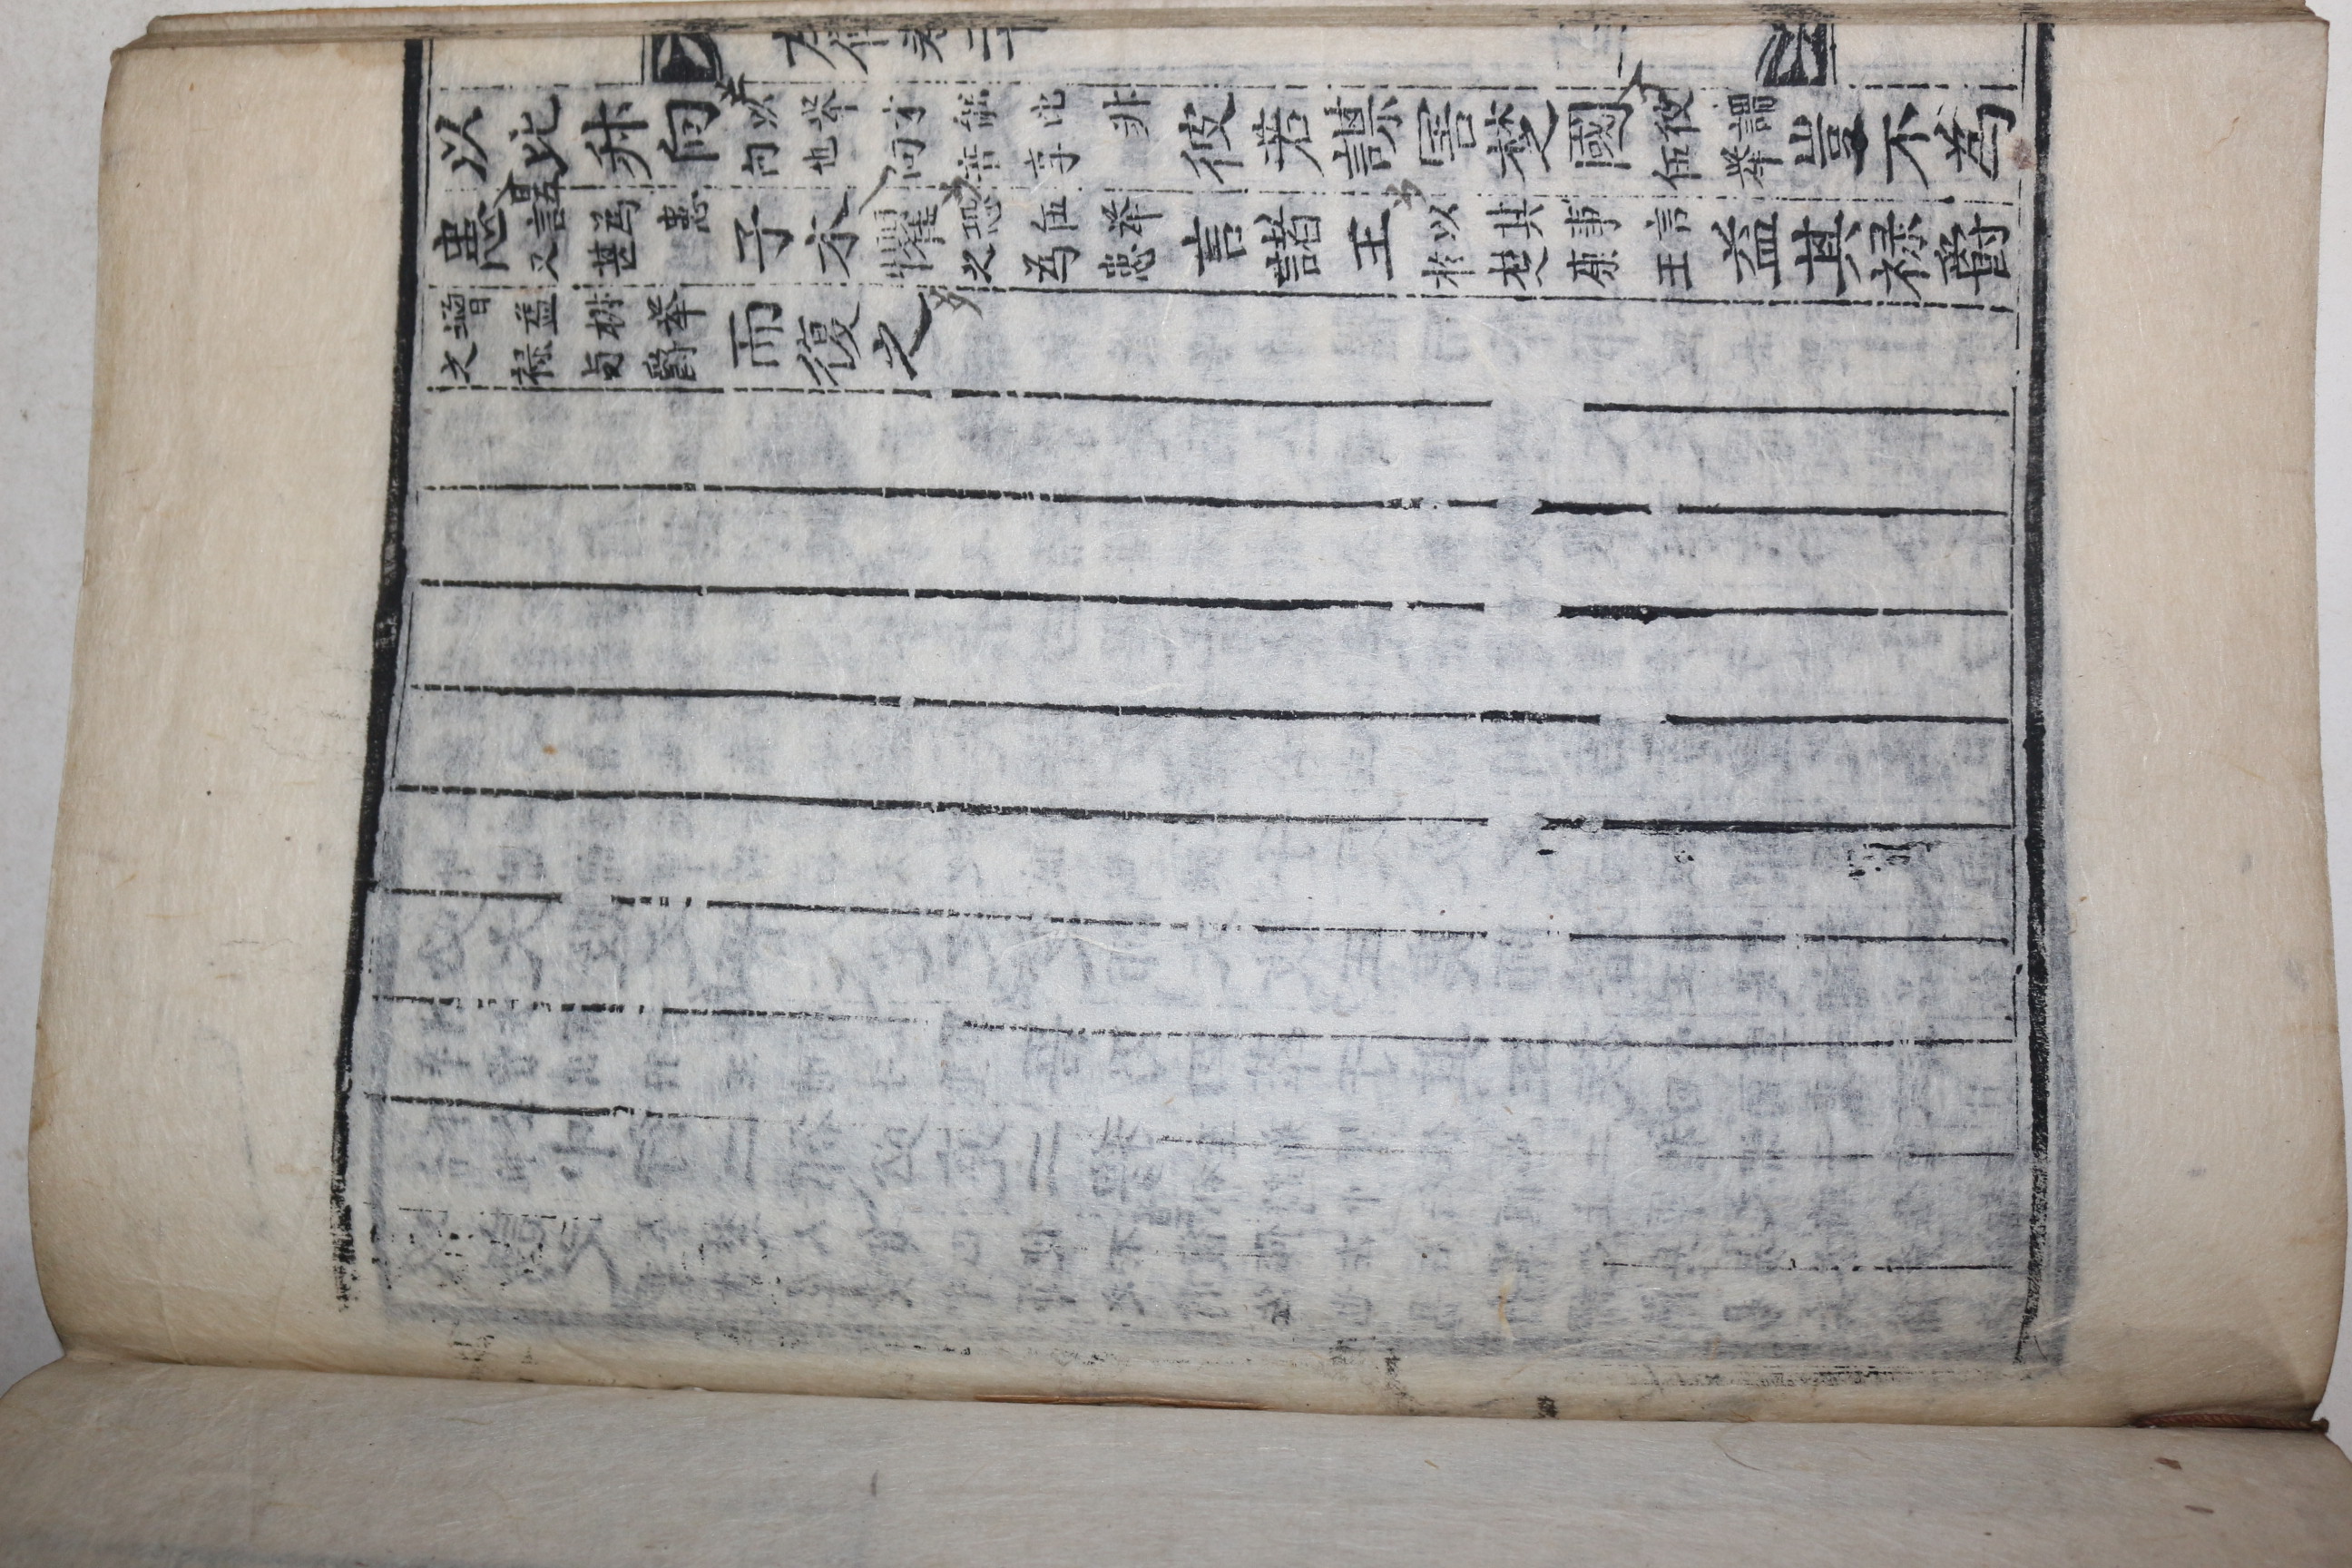 左傳卷二十
以比叔向以舉才能比叔向也向音享彼若謀害楚國彼謂伍舉豈不為
患謂為患又甚子木懼恐伍舉之為患言諸王以其事言於楚康王益其祿爵
增益椒舉之祿與爵而復之